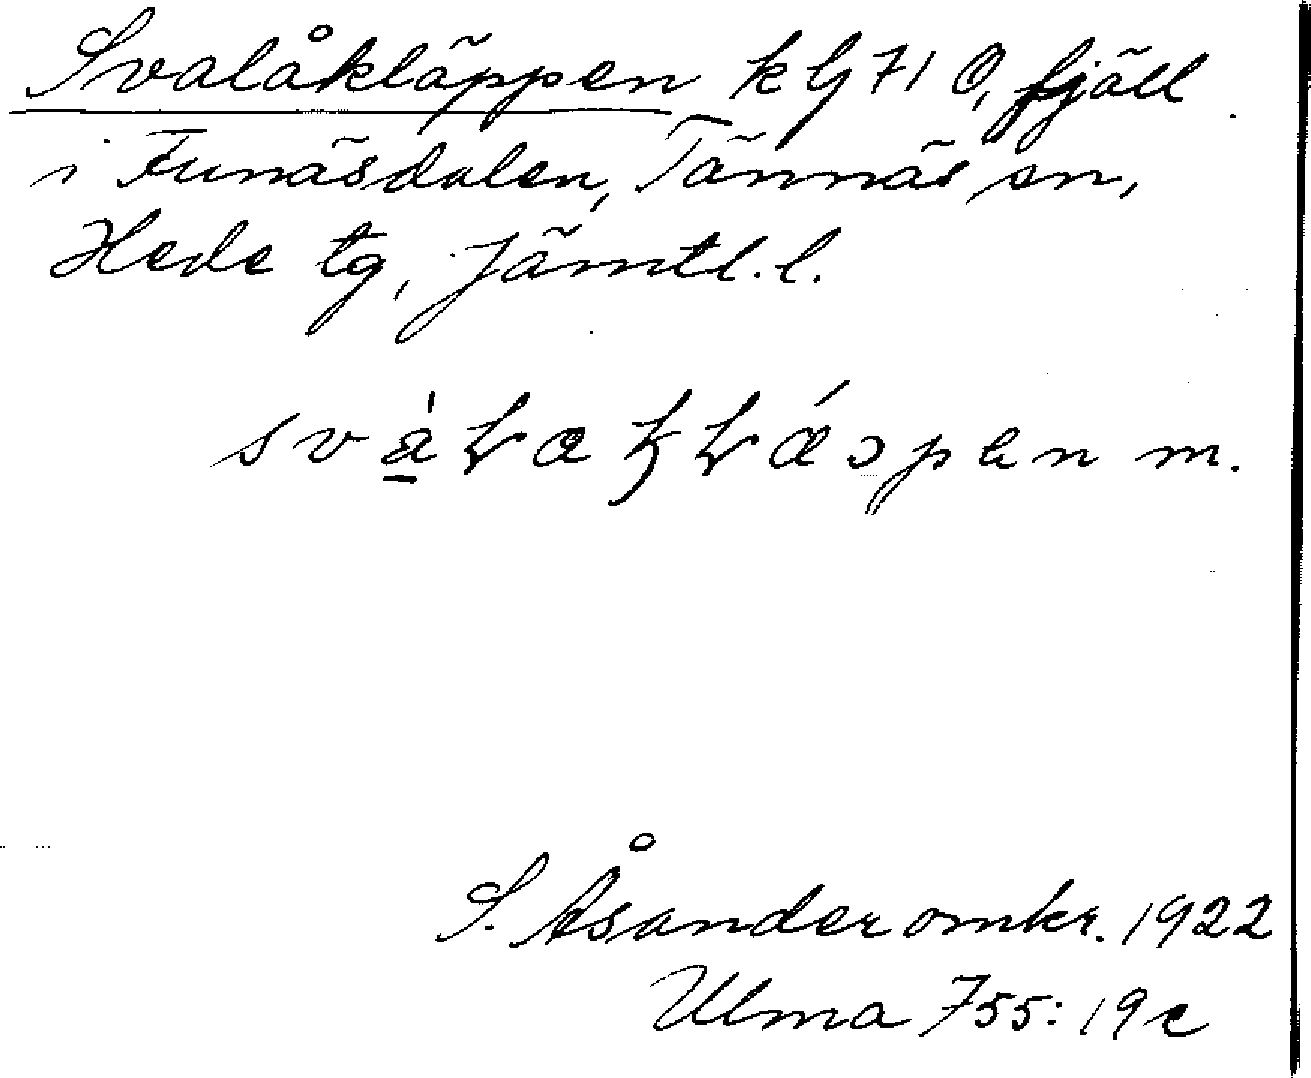 Svalåkläppen kbl 71 O, fjäll
i Funäsdalen, Tännäs sn,
Hede tg, Jämtl. l.
m.
S. Åsander omkr. 1922
Ulma 755: 19c